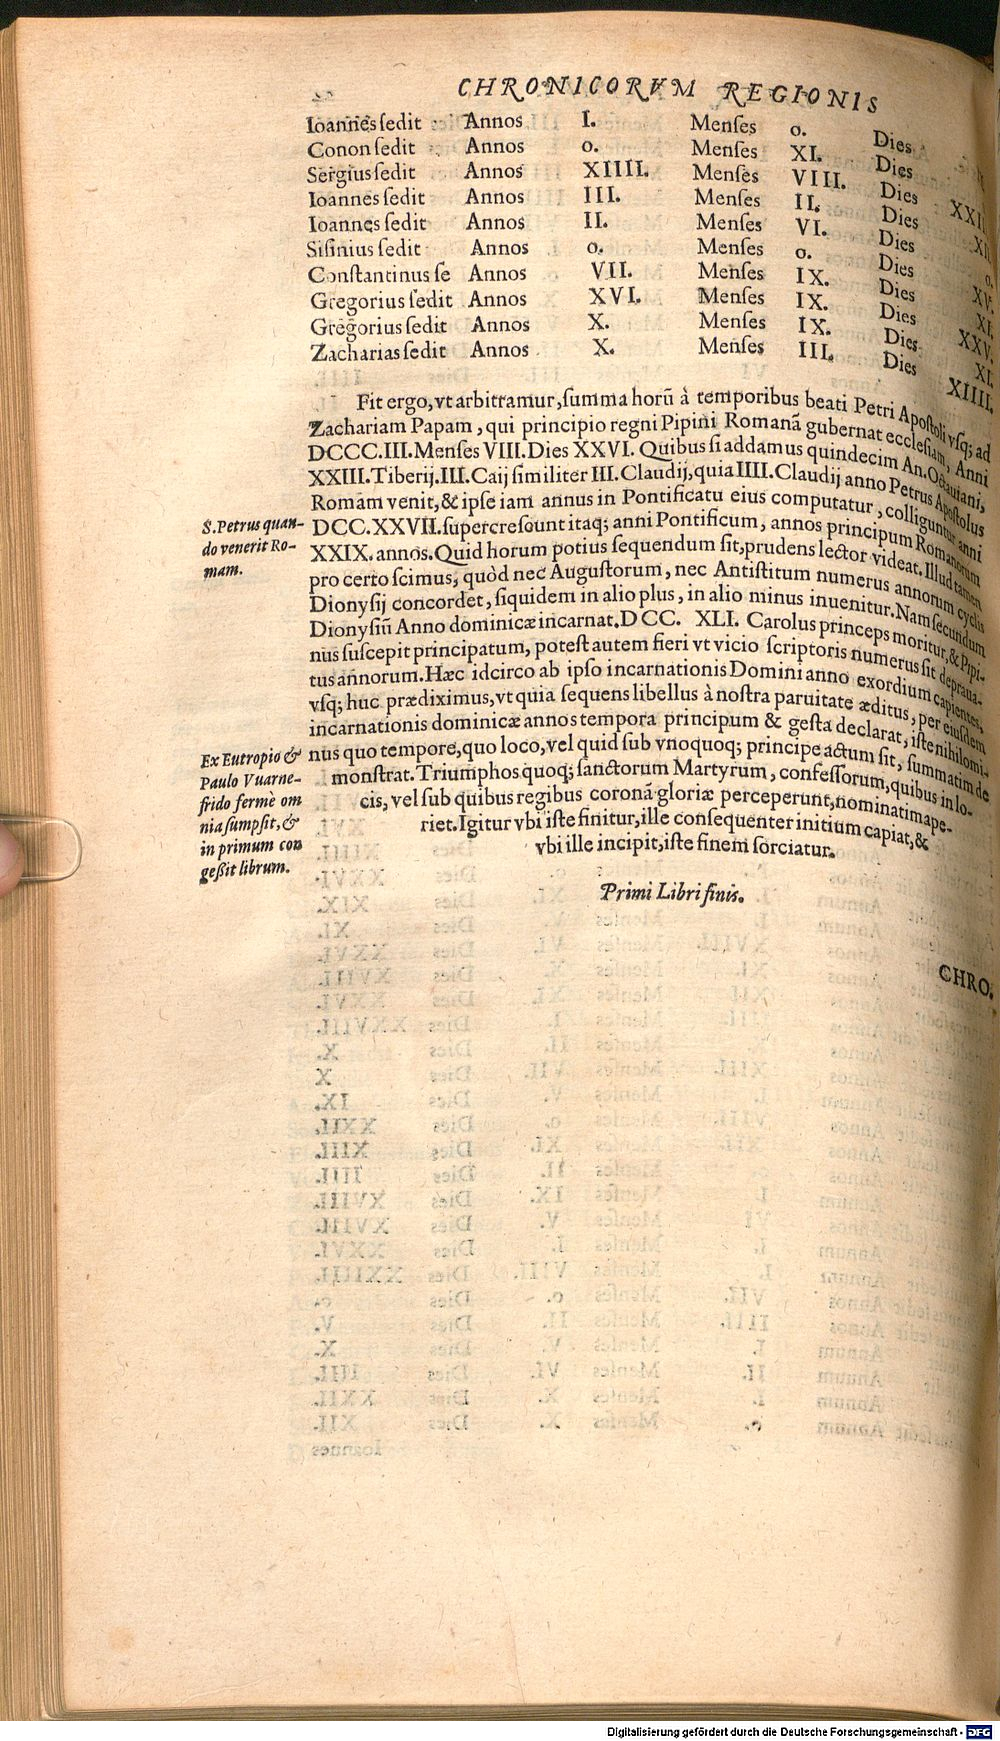 CHRONICORVM REGIONIS
Ioannes sedit Annos I. Menses o. Dies
Conon sedit Annos o. Menses XI. Dies
Sergius sedit Annos XIIII. Menses VIII. Dies
Ioannes sedit Annos III. Menses II. Dies
Ioannes sedit Annos II. Menses VI. Dies
Sisinius sedit Annos o. Menses o. Dies o.
Constantinus se Annos VII. Menses IX. Dies XV.
Gregorius sedit Annos XVI. Menses IX. Dies XI.
Gregorius sedit Annos X. Menses IX. Dies XXV.
Zacharias sedit Annos X. Menses III. Dies XIIII.
Fit ergo, vt arbitramur, summa horũ à temporibus beati Petri Apostoli vsq; ad
Zachariam Papam, qui principio regni Pipini Romanã gubernat ecclesiam, Anni
DCCC.III. Menses VIII. Dies XXVI. Quibus si addamus quindecim An. Octauiani,
XXIII. Tiberij. III. Caij similiter III. Claudij, quia IIII. Claudij anno Petrus Apostolus
Romam venit, & ipse iam annus in Pontificatu eius computatur, colliguntur anni
DCC.XXVII. supercrescunt itaq; anni Pontificum, annos principum Romanorum
XXIX. annos. Quid horum potius sequendum sit, prudens lector videat. Illud tamen
pro certo scimus, quòd nec Augustorum, nec Antistitum numerus annorum cyclis
Dionysij concordet, siquidem in alio plus, in alio minus inuenitur. Nam secundum
Dionysiũ Anno dominicæ incarnat. DCC. XLI. Carolus princeps moritur, & Pipi-
nus suscepit principatum, potest autem fieri vt vicio scriptoris numerus sit depraua-
tus annorum. Hæc idcirco ab ipso incarnationis Domini anno exordium capientes,
vsq; huc prædiximus, vt quia sequens libellus à nostra paruitate æditus, per eiusdem
incarnationis dominicæ annos tempora principum & gesta declarat, iste nihilomi-
nus quo tempore, quo loco, vel quid sub vnoquoq; principe actum sit, summatim de
monstrat. Triumphos quoq; sanctorum Martyrum, confessorum, quibus in lo-
cis, vel sub quibus regibus coronã gloriæ perceperunt, nominatim ape-
riet. Igitur vbi iste finitur, ille consequenter initium capiat, &
vbi ille incipit, iste finem sorciatur.
Primi Libri finis.
CHRO.
S. Petrus quan-
do venerit Ro-
mam.
Ex Eutropio &
Paulo Vuarne-
frido fermè om
nia sumpsit, &
in primum con
geßit librum.
Digitalisierung gefördert durch die Deutsche Forschungsgemeinschaft - DFG